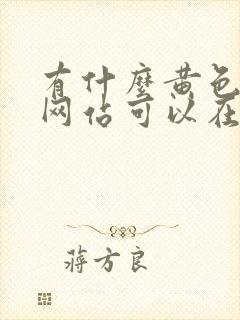 有什麼黄色
网佔可以在
蒋方良